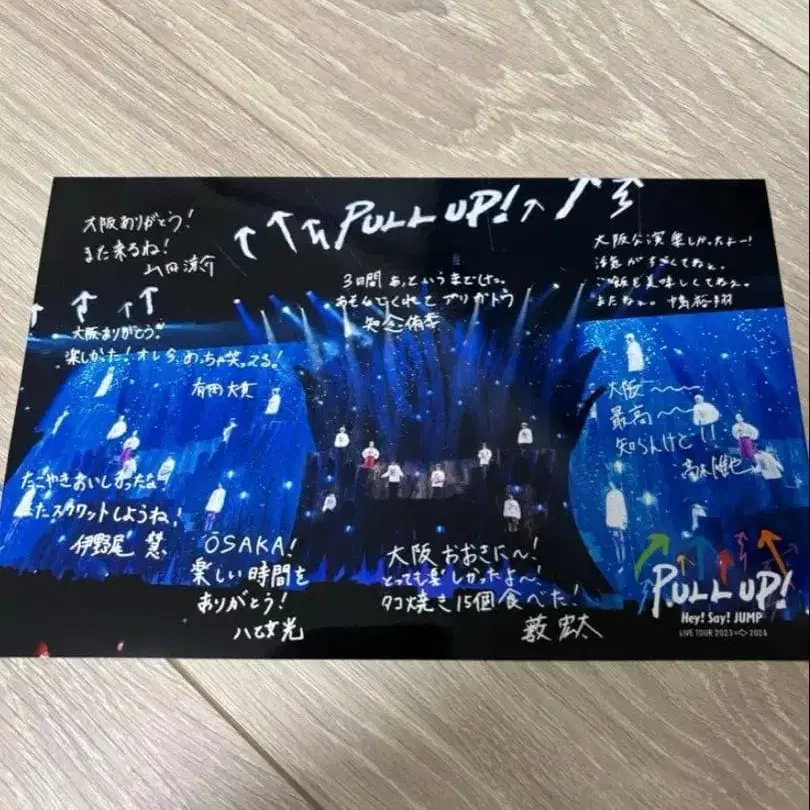 PULL UP!
大阪ありがとう!
また来るね!
山田涼介
3日間あっというまでした。
あそんでくれてアリガトウ
知念侑李
大阪公演楽しかったよー!
活気がすごくてねぇ。
ご飯も美味しくてねぇ。
またねぇ。中島裕翔
大阪ありがとう。
楽しかった!オレら、めっちゃ笑ってる!
有岡大貴
大阪〜〜
最高〜〜
知らんけど!!
高木雄也
たこやきおいしかったな!
またスクワットしようね!
伊野尾 慧
OSAKA!
楽しい時間を
ありがとう!
八乙女光
大阪おおきに〜!
とっても楽しかったよ〜!
タコ焼き15個食べた!
薮 宏太
PULL UP!
Hey! Say! JUMP
LIVE TOUR 2023⇨2024